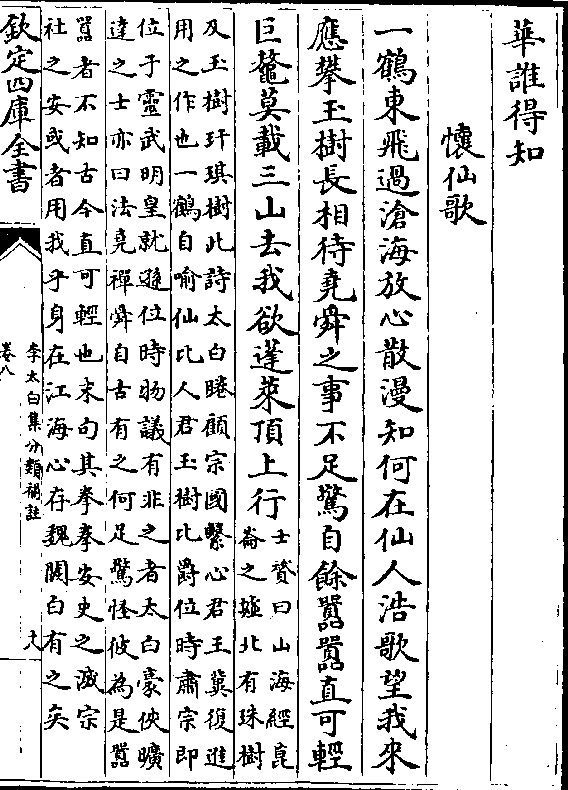 華誰得知
懷仙歌
一鶴東飛過滄海放心散漫知何在仙人浩歌望我來
應攀玉樹長相待堯舜之事不足驚自餘囂囂直可輕
巨鼇莫載三山去我欲蓬萊頂上行
士贇曰山海經昆
崙之墟北有珠樹
及玉樹玕琪樹此詩太白睠顧宗國繫心君王冀復進
用之作也一鶴自喻仙比人君玉樹比爵位時肅宗即
位于靈武明皇就遜位時物議有非之者太白豪俠曠
達之士亦曰法堯禪舜自古有之何足驚怪彼為是囂
囂者不知古今直可輕也末句其拳拳安史之滅宗
社之安或者用我乎身在江海心存魏闕白有之矣
欽定四庫全書
李太白集分類補註
卷八